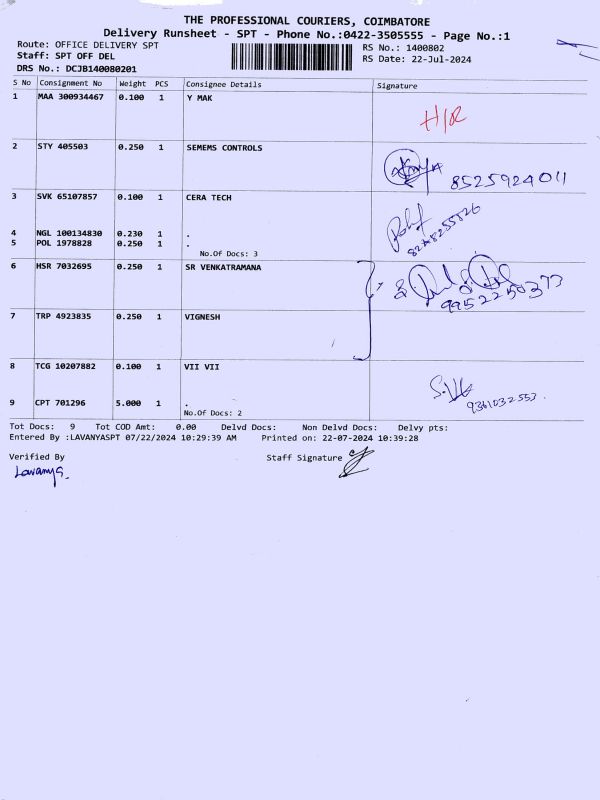 THE PROFESSIONAL COURIERS, COIMBATORE
Delivery Runsheet - SPT - Phone No.:0422-3505555 - Page No.:1
Route: OFFICE DELIVERY SPT RS No.: 1400802
Staff: SPT OFF DEL RS Date: 22-Jul-2024
DRS No.: DCJB140080201
S No Consignment No Weight PCS Consignee Details Signature
1 MAA 300934467 0.100 1 Y MAK
H/R
2 STY 405503 0.250 1 SEMEMS CONTROLS
8525924011
3 SVK 65107857 0.100 1 CERA TECH
4 NGL 100134830 0.230 1 .
5 POL 1978828 0.250 1 .
No.Of Docs: 3
6 HSR 7032695 0.250 1 SR VENKATRAMANA
9952250373
7 TRP 4923835 0.250 1 VIGNESH
8 TCG 10207882 0.100 1 VII VII
9361032553
9 CPT 701296 5.000 1 .
No.Of Docs: 2
Tot Docs: 9 Tot COD Amt: 0.00 Delvd Docs: Non Delvd Docs: Delvy pts:
Entered By :LAVANYASPT 07/22/2024 10:29:39 AM Printed on: 22-07-2024 10:39:28
Verified By Staff Signature
Lavanya.